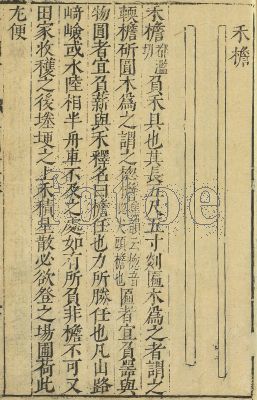 禾檐
禾檐都濫切負禾具也其長五尺五寸剡匾木為之者謂之
輭檐斫圓木為之謂之楤檐集韻云楤音尖頭檐也匾者宜負器與
物圓者宜負薪與禾釋名曰檐任也力所勝任也凡山路
崎嶮或水陸相半舟車不及之處如有所負非檐不可又
田家收穫之後塍埂之上禾積星散必欲登之場圃荷此
尤便